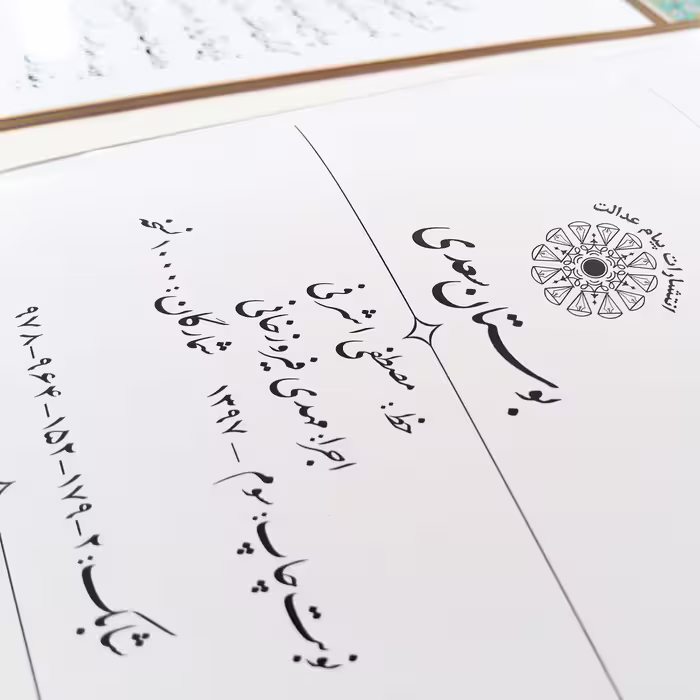 انتشارات پیام عدالت
بوستان سعدی
خط: مصطفی اشرفی
اجرا: مهدی فیروزخانی
نوبت چاپ: سوم - ۱۳۹۷
شمارگان: ۱۰۰۰ نسخه
شابک: ۲-۱۷۹-۱۵۲-۹۶۴-۹۷۸